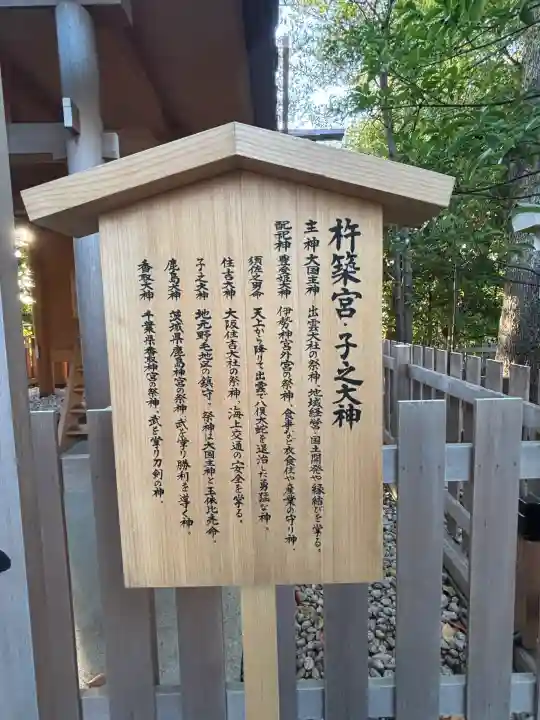 杵築宮・子之大神
主神 大国主神 出雲大社の祭神、地域経営・国土開発や縁結びを掌る。
配祀神 豊受姫大神 伊勢神宮外宮の祭神、食事など衣食住や産業の守り神。
須佐之男命 天上から降りて出雲で八俣大蛇を退治した勇猛な神。
住吉大神 大阪住吉大社の祭神、海上交通の安全を掌る。
子之大神 地元野毛地区の鎮守、祭神は大国主神と玉依比売命。
鹿島大神 茨城県鹿島神宮の祭神、武を掌り勝利を導く神。
香取大神 千葉県香取神宮の祭神、武を掌り刀剣の神。